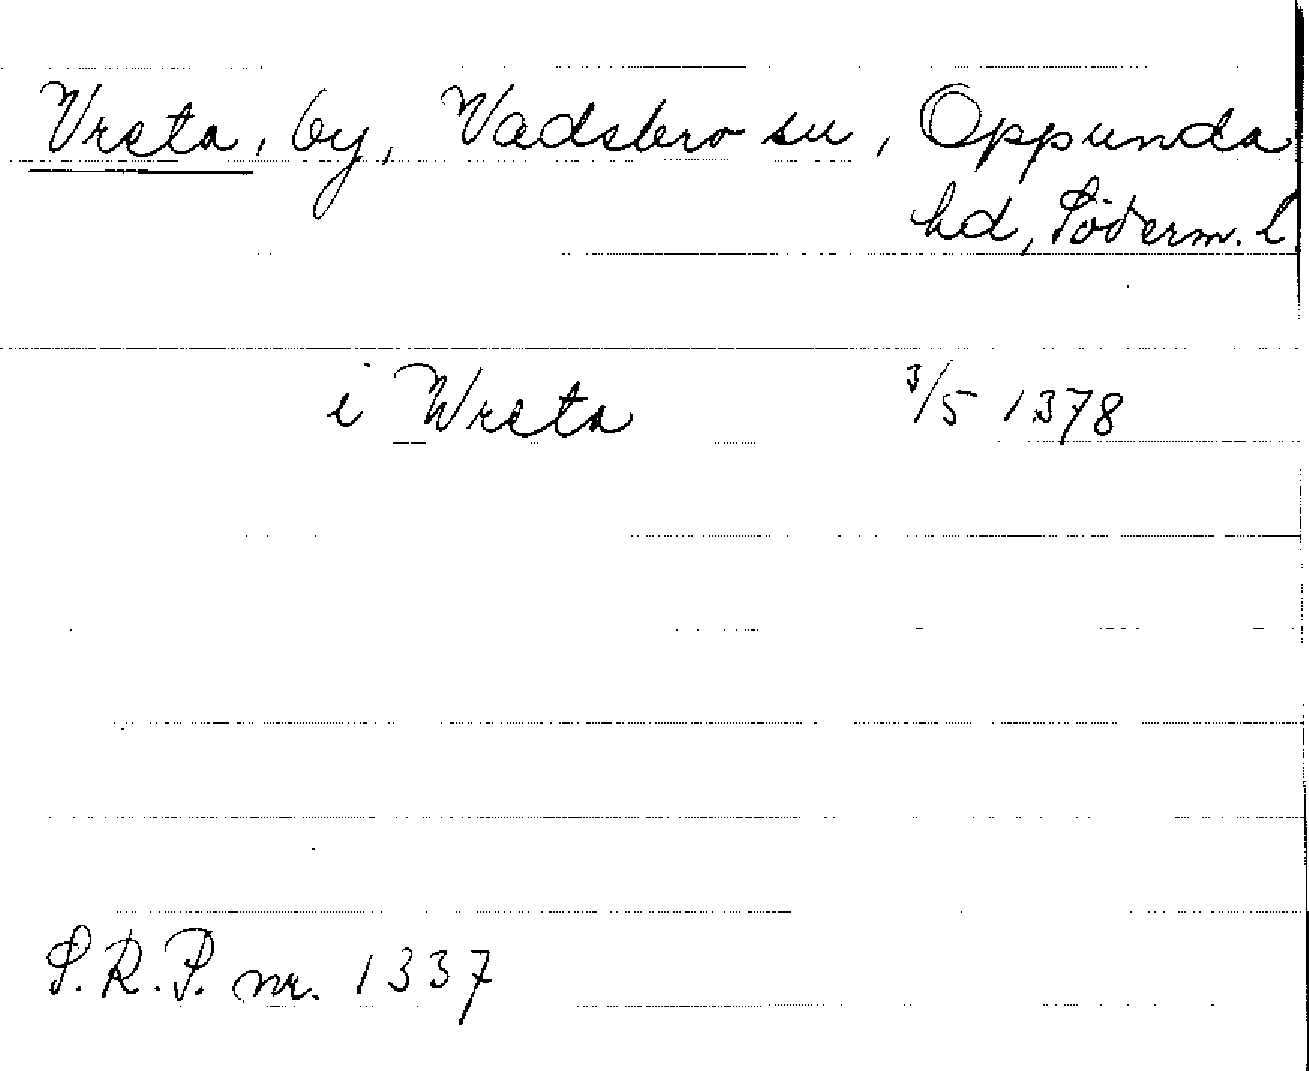 Vreta, by, Vadsbro sn, Oppunda
hd, Söderm. l
i Wreta 3/5 1378
S.R.P. nr. 1337